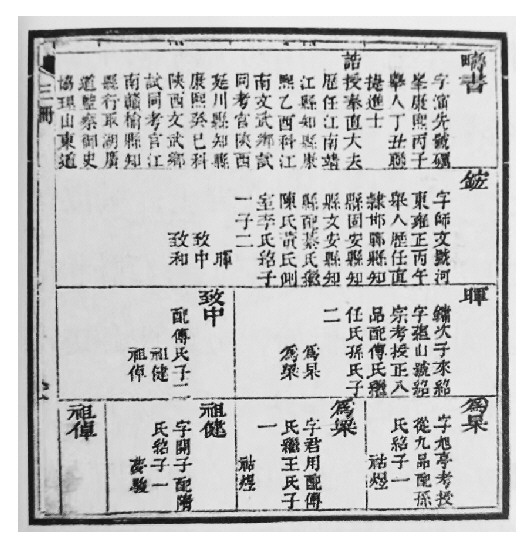 疇書
字演先號礪
峯康熙丙子
舉人丁丑聯
捷進士
誥授奉直大夫
歷任江南靖
江縣知縣康
熙乙酉科江
南文武鄉試
同考官陝西
延川縣知縣
康熙癸巳科
陝西文武鄉
試同考官江
南贛榆縣知
縣行取湖廣
道監察御史
協理山東道
字師文號河
東雍正丙午
舉人歷任直
隸邯鄲縣知
縣固安縣知
縣文安縣知
縣配蔡氏繼
陳氏黃氏側
室李氏紹子
一子二
暉
致中
致和
暉
繡次子來紹
字蘊山號紹
宗考授正八
品配傅氏繼
任氏孫氏子
二
為杲
為梁
致中
配傅氏子二
祖健
祖倬
為杲
字旭亭考授
從九品配孫
氏紹子一
祜煜
為梁
字君用配傅
氏繼王氏子
一
祜煜
祖健
字開子配隋
氏紹子一
夢駿
祖倬
三冊